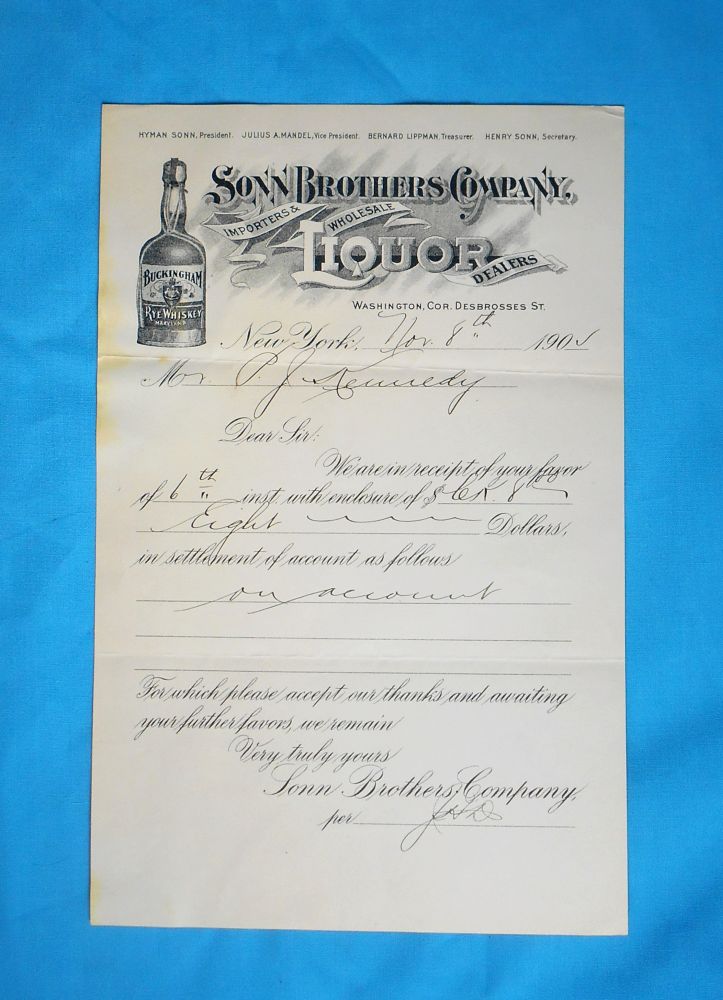 HYMAN SONN, President. JULIUS A. MANDEL, Vice President. BERNARD LIPPMAN, Treasurer. HENRY SONN, Secretary.
SONN BROTHERS COMPANY,
IMPORTERS & WHOLESALE
LIQUOR
DEALERS
BUCKINGHAM
RYE WHISKEY
MARYLAND
WASHINGTON, COR. DESBROSSES ST.
New York, Nov. 8th 190
Mr. P. J. Kennedy
Dear Sir:
We are in receipt of your favor
of 6th inst. with enclosure of $ Ck. 8
Eight Dollars,
in settlement of account as follows
on account
For which please accept our thanks and awaiting
your further favors, we remain
Very truly yours
Sonn Brothers Company,
per